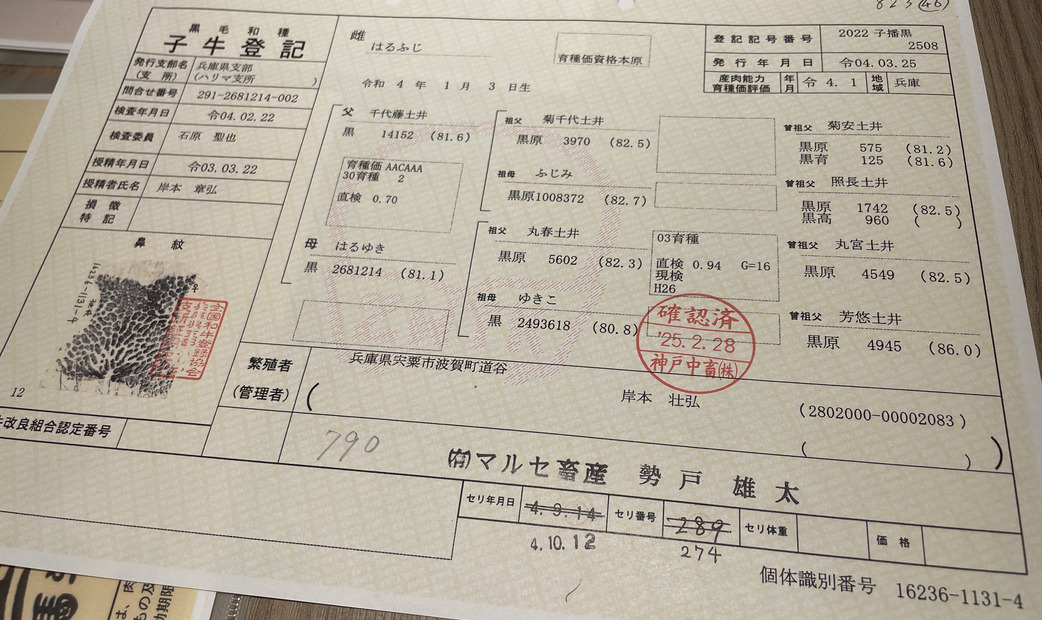 823(46)
黒毛和種
子牛登記
発行支部名 兵庫県支部
(支所) (ハリマ支所 )
問合せ番号 291-2681214-002
検査年月日 令04.02.22
検査委員 石原 聖也
授精年月日 令03.03.22
授精者氏名 岸本 章弘
損徴
特記
鼻紋
16236-1131-4
全国和牛登録協会
12
牛改良組合認定番号
雌
はるふじ
育種価資格本原
令和 4 年 1 月 3 日生
登記記号番号 2022 子播黒
2508
発行年月日 令04.03.25
産肉能力
育種価評価 年月 令 4. 1 地域 兵庫
父 千代藤土井
黒 14152 (81.6)
育種価 AACAAA
30育種 2
直検 0.70
母 はるゆき
黒 2681214 (81.1)
祖父 菊千代土井
黒原 3970 (82.5)
祖母 ふじみ
黒原1008372 (82.7)
祖父 丸春土井
黒原 5602 (82.3)
祖母 ゆきこ
黒 2493618 (80.8)
03育種
直検 0.94 G=16
現検
H26
曾祖父 菊安土井
黒原 575 (81.2)
黒育 125 (81.6)
曾祖父 照長土井
黒原 1742 (82.5)
黒高 960 ( )
曾祖父 丸宮土井
黒原 4549 (82.5)
曾祖父 芳悠土井
黒原 4945 (86.0)
確認済
'25.2.28
神戸中畜㈱
繁殖者
(管理者)
兵庫県宍粟市波賀町道谷
岸本 壮弘
(2802000-00002083 )
( )
790
㈲マルセ畜産 勢戸雄太
セリ年月日 4.9.14 セリ番号 289 セリ体重 価格
4.10.12 274
個体識別番号 16236-1131-4